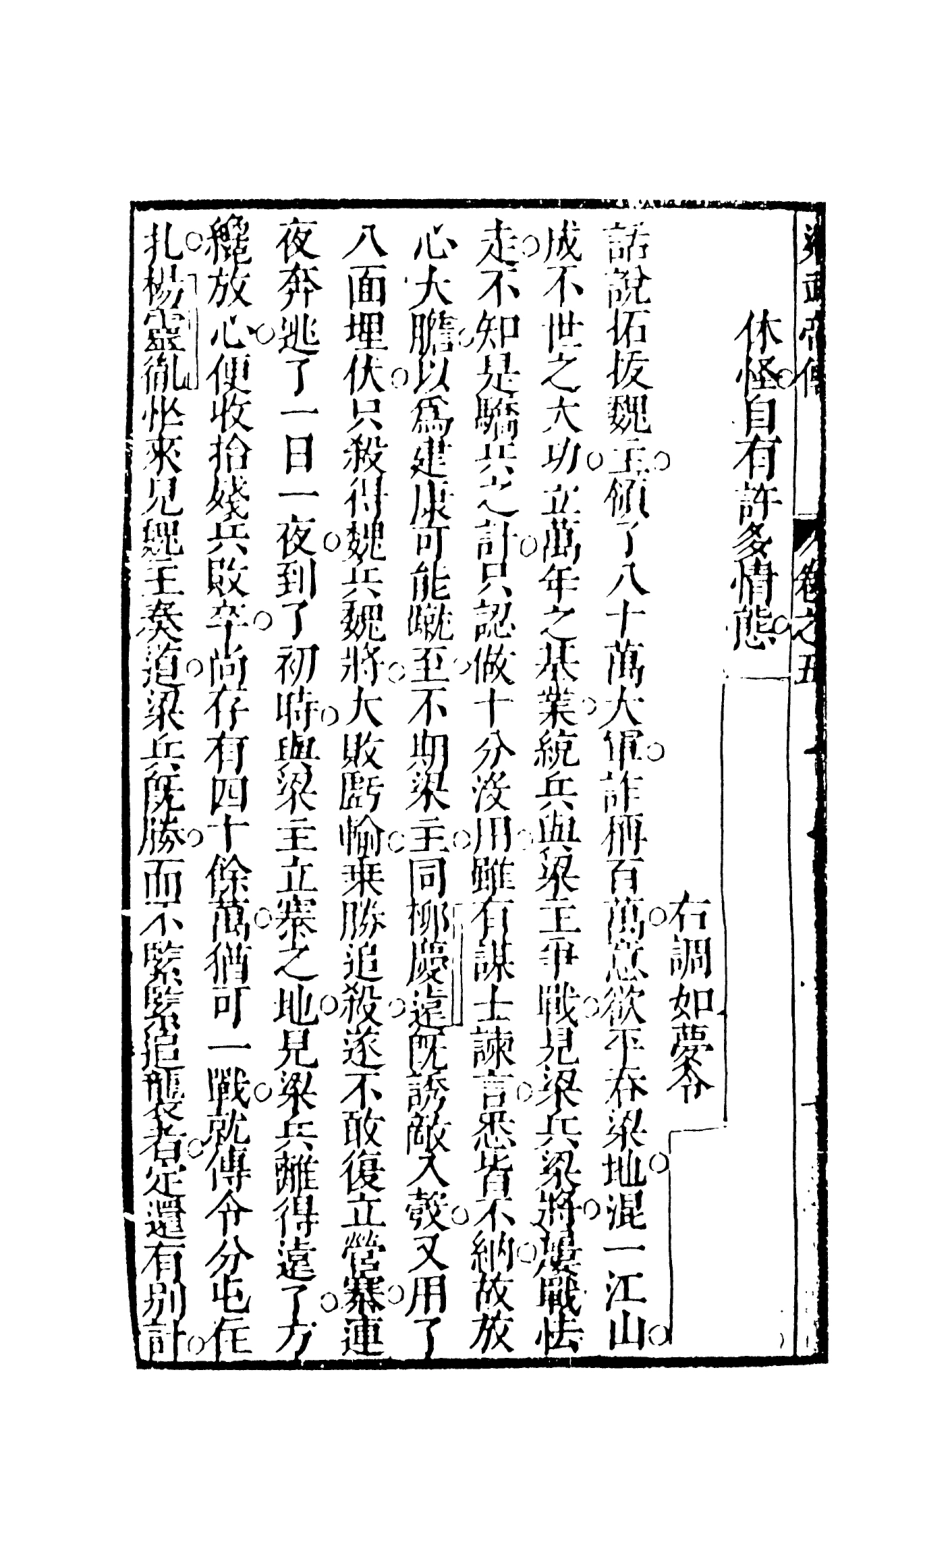 梁武帝傳 卷之五
休怪○自有許多情態○
右調如夢令
話說拓拔魏主○領了八十萬大軍○詐稱百萬○意欲平吞梁地○混一江山○
成不世之大功○立萬年之基業○統兵與梁王爭戰○見梁兵梁將○屢戰怯
走○不知是驕兵之計○只認做十分沒用○雖有謀士諫言○悉皆不納○故放
心大膽○以爲建康可能蹴至○不期梁主○同柳慶遠旣誘敵入彀○又用了
八面埋伏○只殺得魏兵魏將○大敗虧輸○乘勝追殺○遂不敢復立營寨○連
夜奔逃了一日一夜○到了初時○與梁主立寨之地○見梁兵離得遠了○方
纔放心○便收拾殘兵敗卒○尚存有四十餘萬○猶可一戰○就傳令分屯住
扎○楊靈胤忙來見魏王奏道○梁兵旣勝○而不緊緊追襲者○定還有别計○